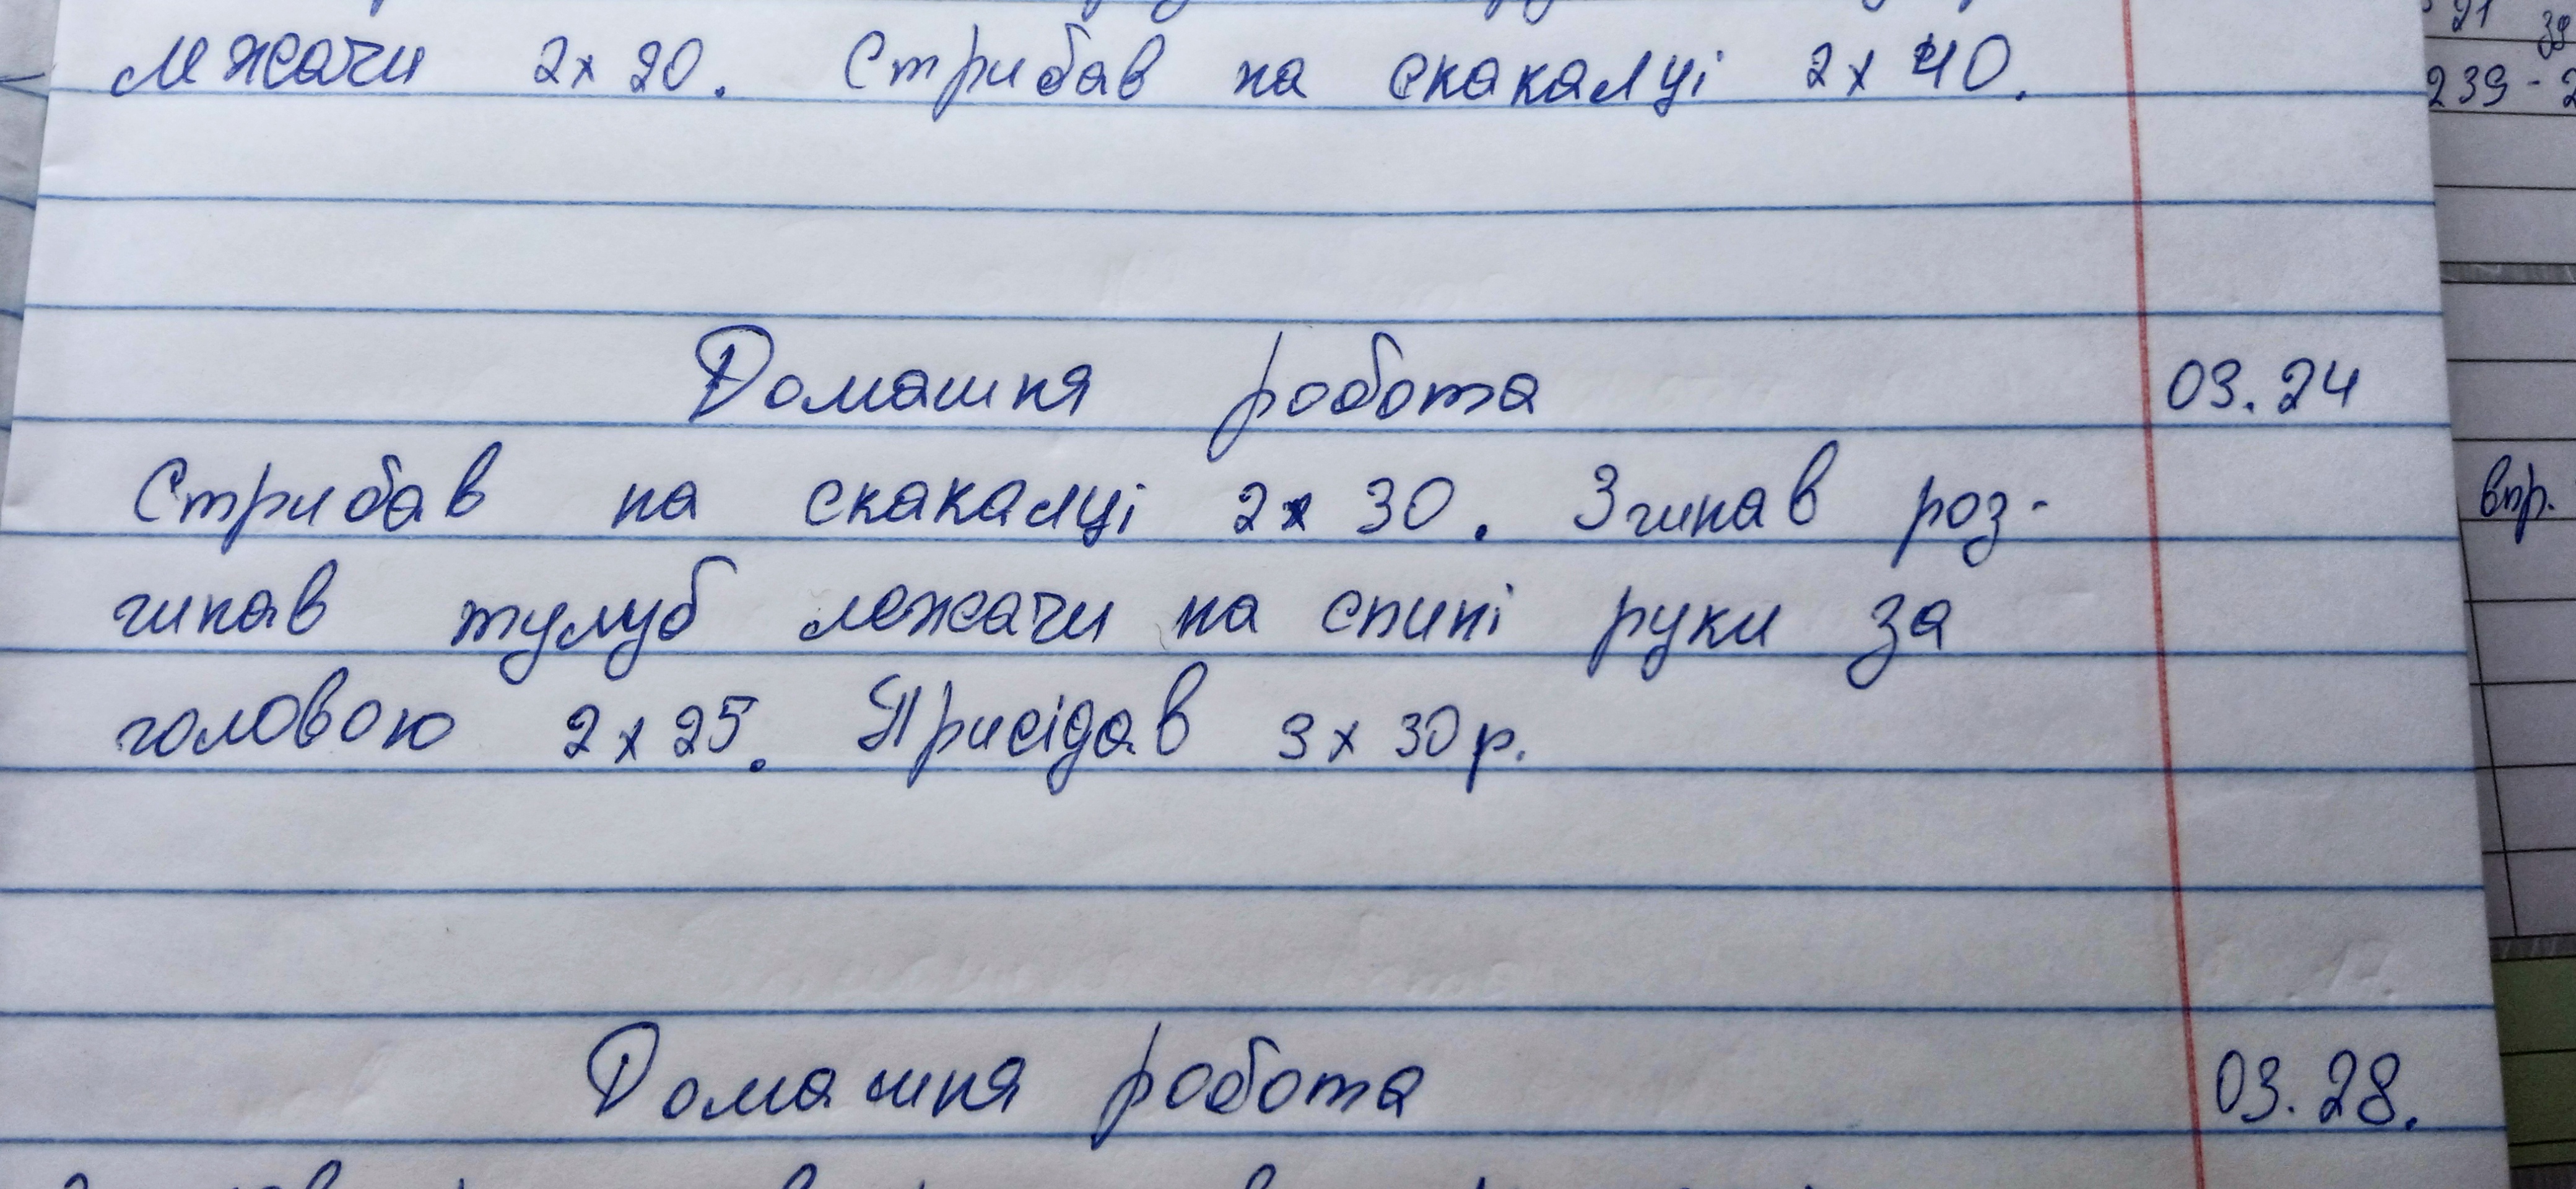 лежачи 2х 20. Стрибав на скакалці 2х 40.
Домашня робота 03.24
Стрибав на скакалці 2х 30. Згинав роз-
гинав тулуб лежачи на спині руки за
головою 2х 25. Присідав 3х 30р.
Домашня робота 03.28.
21
239 - 2
впр.